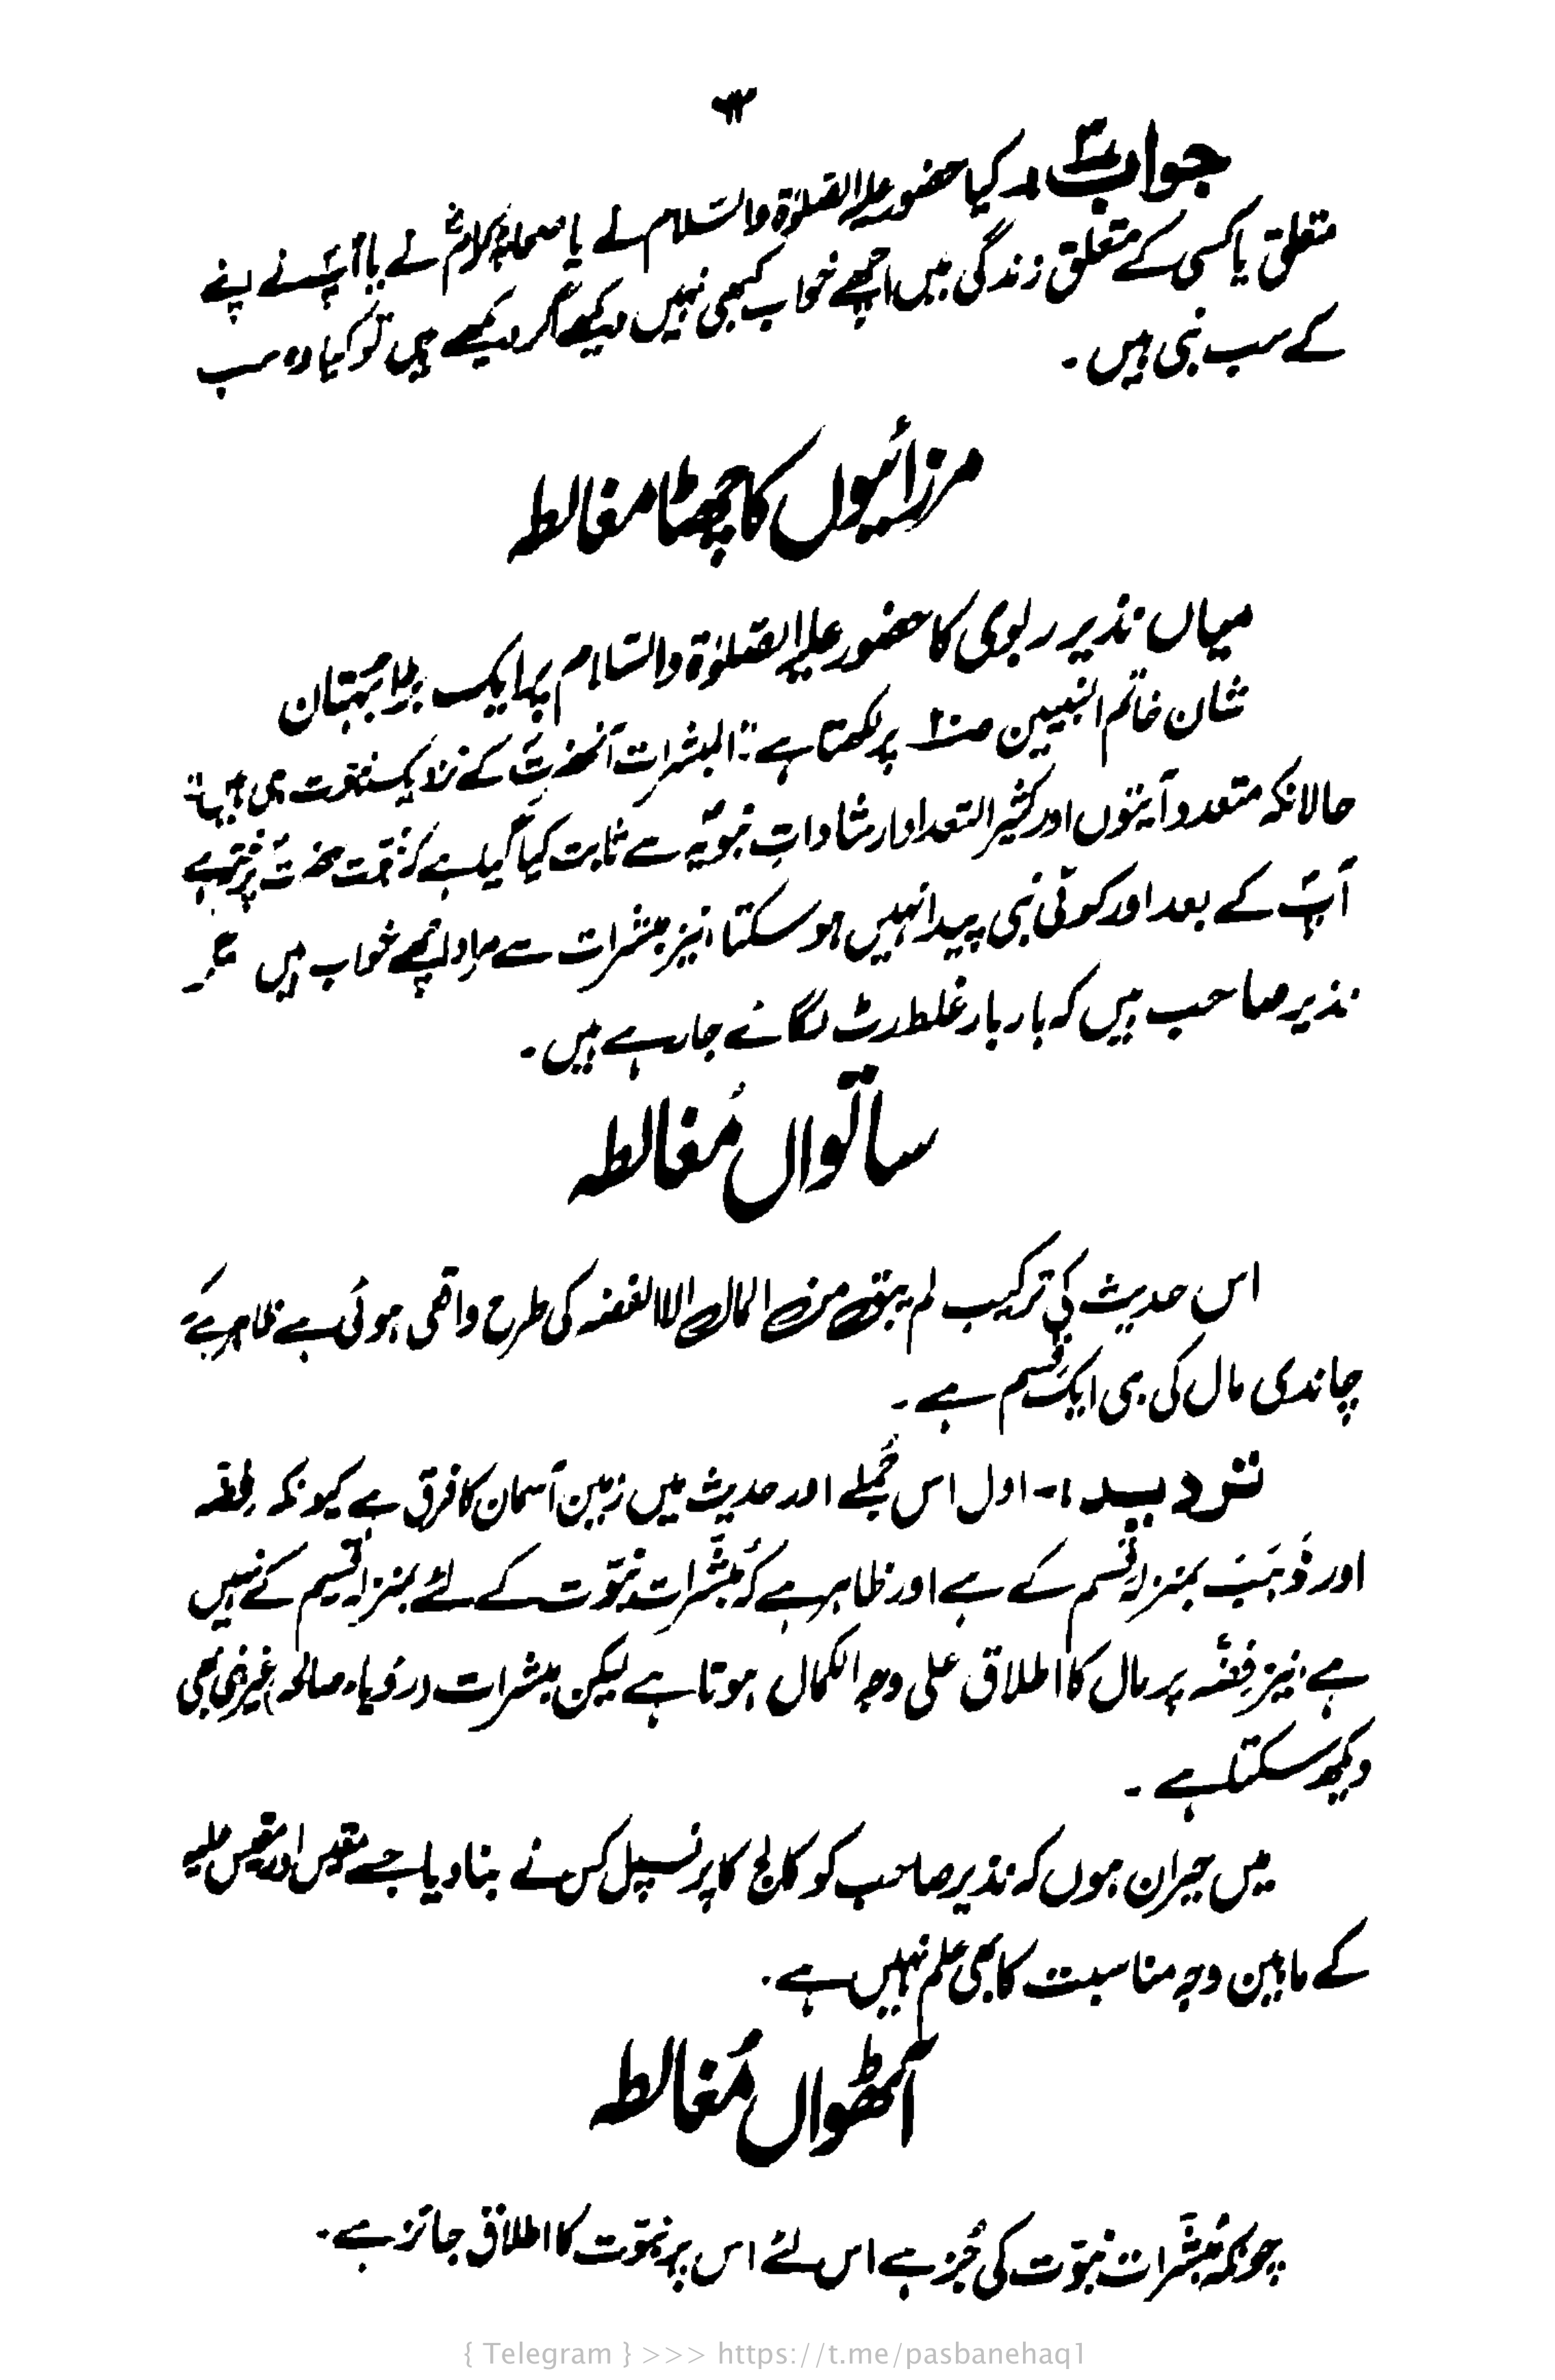 ۳
جواب ۳ :۔ کیا حضور علیہ الصلوٰۃ والسلام نے یا صحابہ کرامؓ نے یا آپ نے اپنے
متعلق یا کسی کے متعلق زندگی میں اچھے خواب کبھی نہیں دیکھے اگر دیکھے ہیں تو کیا وہ سب
کے سب نبی ہیں ۔
مرزائیوں کا چھٹا مغالطہ
میاں نذیر ربوی کا حضور علیہ الصلوٰۃ والسلام پر ایک بڑا بہتان
شان خاتم النبیین پر لکھتا ہے : "المبشرات آنحضرتؐ کے نزدیک نبوت ہی ہیں"
حالانکہ متعدد آیتوں اور کثیر التعداد ارشادات نبویہ سے ثابت کیا گیا ہے کہ نبوت حضرتؐ پر ختم ہے
آپؐ کے بعد اور کوئی نبی پیدا نہیں ہو سکتا، نیز مبشرات سے مراد اچھے خواب ہیں مگر
نذیر صاحب ہیں کہ بار بار غلط رٹ لگائے جا رہے ہیں ۔
ساتواں مُغالطہ
اس حدیث کی ترکیب لم یبق من المال الا الفضہ کی طرح واقع ہوئی ہے ظاہر ہے کہ
چاندی مال کی ہی ایک قسم ہے ۔
تردید :۔ اول اس جُملے اور حدیث میں زمین آسمان کا فرق ہے کیونکہ فِضّہ
اور ذَہَبَ بمنزلہ قسم کے ہے اور ظاہر ہے کہ مُبشَّرات نبوّت کے لئے بمنزلہ قسیم کے نہیں
ہے، نیز فِضّہ پر مال کا اطلاق علی وجہ الکمال ہوتا ہے لیکن مبشرات (رؤیاء صالحہ) غیر نبی بھی
دیکھ سکتا ہے ۔
میں حیران ہوں کہ نذیر صاحب کو کالج کا پرنسپل کس نے بنا دیا جسے مقیس اور مقیس علیہ
کے مابین وجہ مناسبت کا بھی علم نہیں ہے ۔
آٹھواں مُغالطہ
چونکہ مُبشَّرات نبوّت کی جُز ہے اس لئے اس پر نبوّت کا اطلاق جائز ہے ۔
{ Telegram } >>> https://t.me/pasbanehaq1